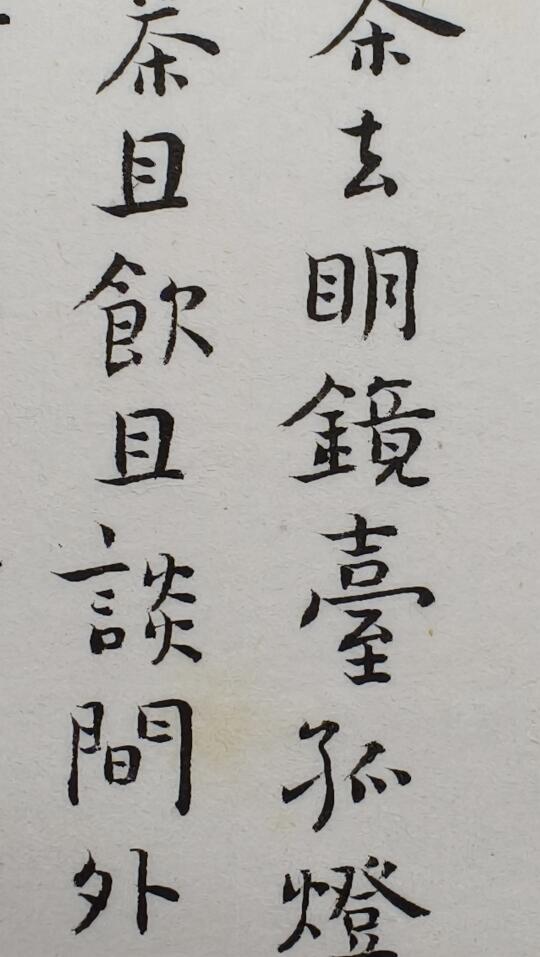 茶去明鏡臺孤燈
茶且飲且談間外